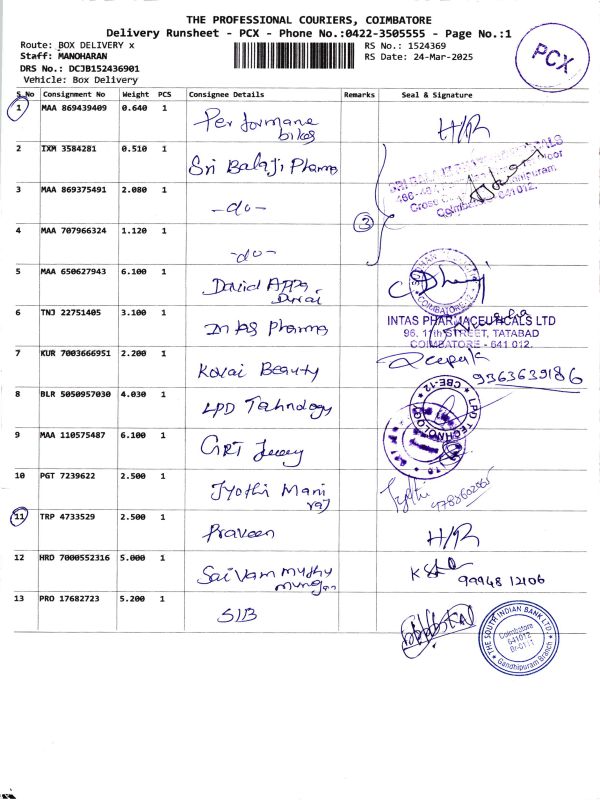 THE PROFESSIONAL COURIERS, COIMBATORE
Delivery Runsheet - PCX - Phone No.:0422-3505555 - Page No.:1
Route: BOX DELIVERY x
RS No.: 1524369
Staff: MANOHARAN
RS Date: 24-Mar-2025
DRS No.: DCJB152436901
Vehicle: Box Delivery
PCX
S_No Consignment No Weight PCS Consignee Details Remarks Seal & Signature
1 MAA 869439409 0.640 1 Performane bikes H/R
2 IXM 3584281 0.510 1 Sri Balaji Pharma
3 MAA 869375491 2.080 1 -do- 3
Coimbatore 641 012.
4 MAA 707966324 1.120 1 -do-
5 MAA 650627943 6.100 1 David Appa Durai
COIMBATORE
6 TNJ 22751405 3.100 1 Intas Pharma
INTAS PHARMACEUTICALS LTD
96, 11th STREET, TATABAD
COIMBATORE - 641 012.
7 KUR 7003666951 2.200 1 Kovai Beauty Deepak
9363639186
8 BLR 5050957030 4.030 1 LPD Tahnology
LPD TECHNOLOGY CBE-12
9 MAA 110575487 6.100 1 GRT Jewey
10 PGT 7239622 2.500 1 Jyothi Mani raj Jyothi
11 TRP 4733529 2.500 1 Praveen H/R
12 HRD 7000552316 5.000 1 Saivam muthu murugan
99948 12106
13 PRO 17682723 5.200 1 SIB
THE SOUTH INDIAN BANK LTD.
Coimbatore
641012
Gandhipuram Branch